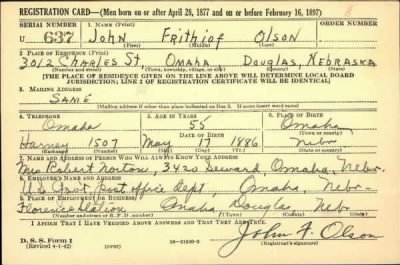 REGISTRATION CARD—(Men born on or after April 28, 1877 and on or before February 16, 1897)
SERIAL NUMBER 1. NAME (Print)
U 637 JOHN FRITHIOF OLSON
(First) (Middle) (Last)
2. PLACE OF RESIDENCE (Print)
3012 CHARLES ST OMAHA DOUGLAS, NEBRASKA
(Number and street) (Town, township, village, or city) (County) (State)
[THE PLACE OF RESIDENCE GIVEN ON THE LINE ABOVE WILL DETERMINE LOCAL BOARD
JURISDICTION; LINE 2 OF REGISTRATION CERTIFICATE WILL BE IDENTICAL]
3. MAILING ADDRESS
SAME
[Mailing address if other than place indicated on line 2. If same insert word same]
4. TELEPHONE 5. AGE IN YEARS 6. PLACE OF BIRTH
Omaha 55 Omaha
DATE OF BIRTH (Town or county)
Harney 1507 May 17 1886 Nebr
(Exchange) (Number) (Mo.) (Day) (Yr.) (State or country)
7. NAME AND ADDRESS OF PERSON WHO WILL ALWAYS KNOW YOUR ADDRESS
Mrs Robert Norton, 3420 Seward Omaha, Nebr.
8. EMPLOYER'S NAME AND ADDRESS
U.S. Govt. Post office Dept Omaha, Nebr-
9. PLACE OF EMPLOYMENT OR BUSINESS
Florence Station Omaha Douglas, Nebr.
(Number and street or R. F. D. number) (Town) (County) (State)
I AFFIRM THAT I HAVE VERIFIED ABOVE ANSWERS AND THAT THEY ARE TRUE.
D. S. S. Form 1 John F. Olson
(Revised 4-1-42) (over) 16—21630-2 (Registrant's signature)